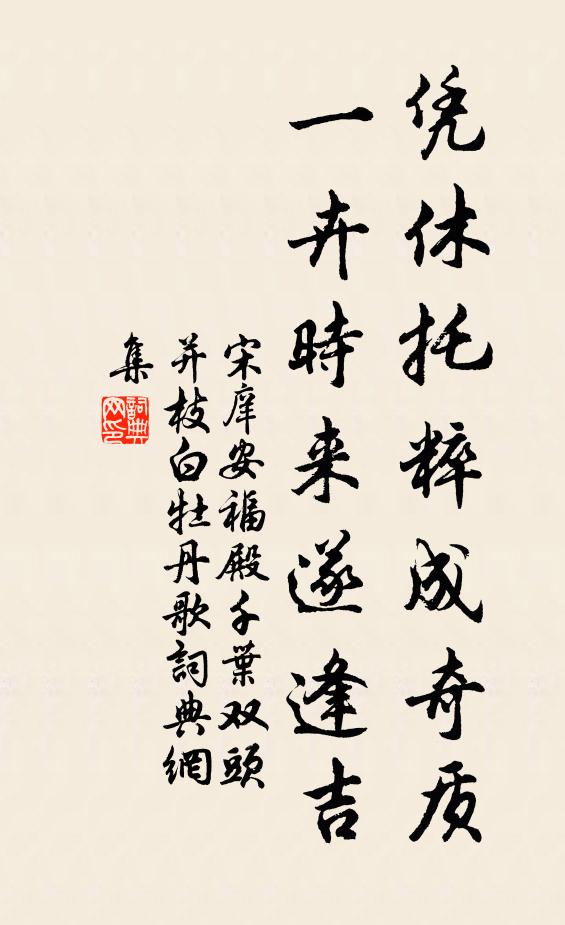 凭休托粹成奇质
一卉時来遂逢吉
宋庠安福殿千葉双頭
并枝白牡丹歌詞典網
集
詞典
网印